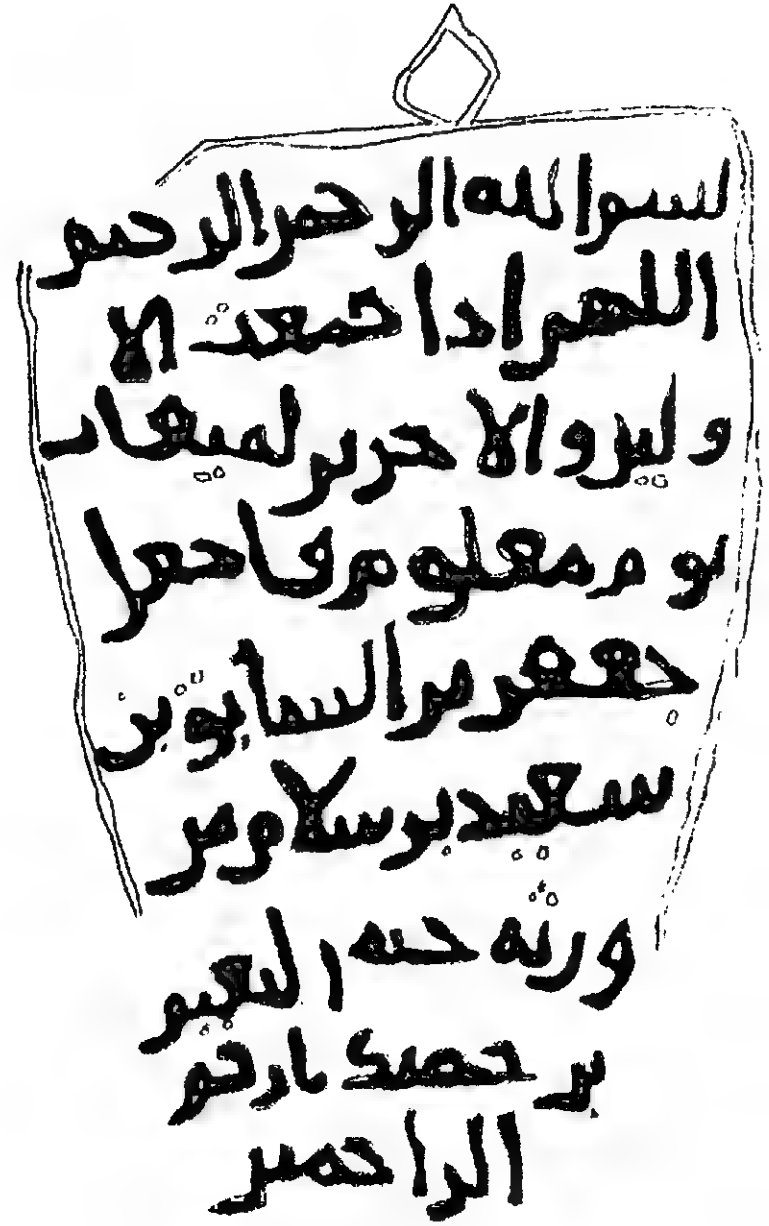 بسم الله الرحمن الرحيم
اللهم اذا جمعت الا
ولين والاخرين لميقات
يوم معلوم فاجعل
جعفر بن السا بن
سعيد بن سلام من
ورثة جنة النعيم
برحمتك يارحم
الراحمين